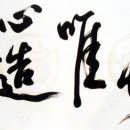 唯
心造